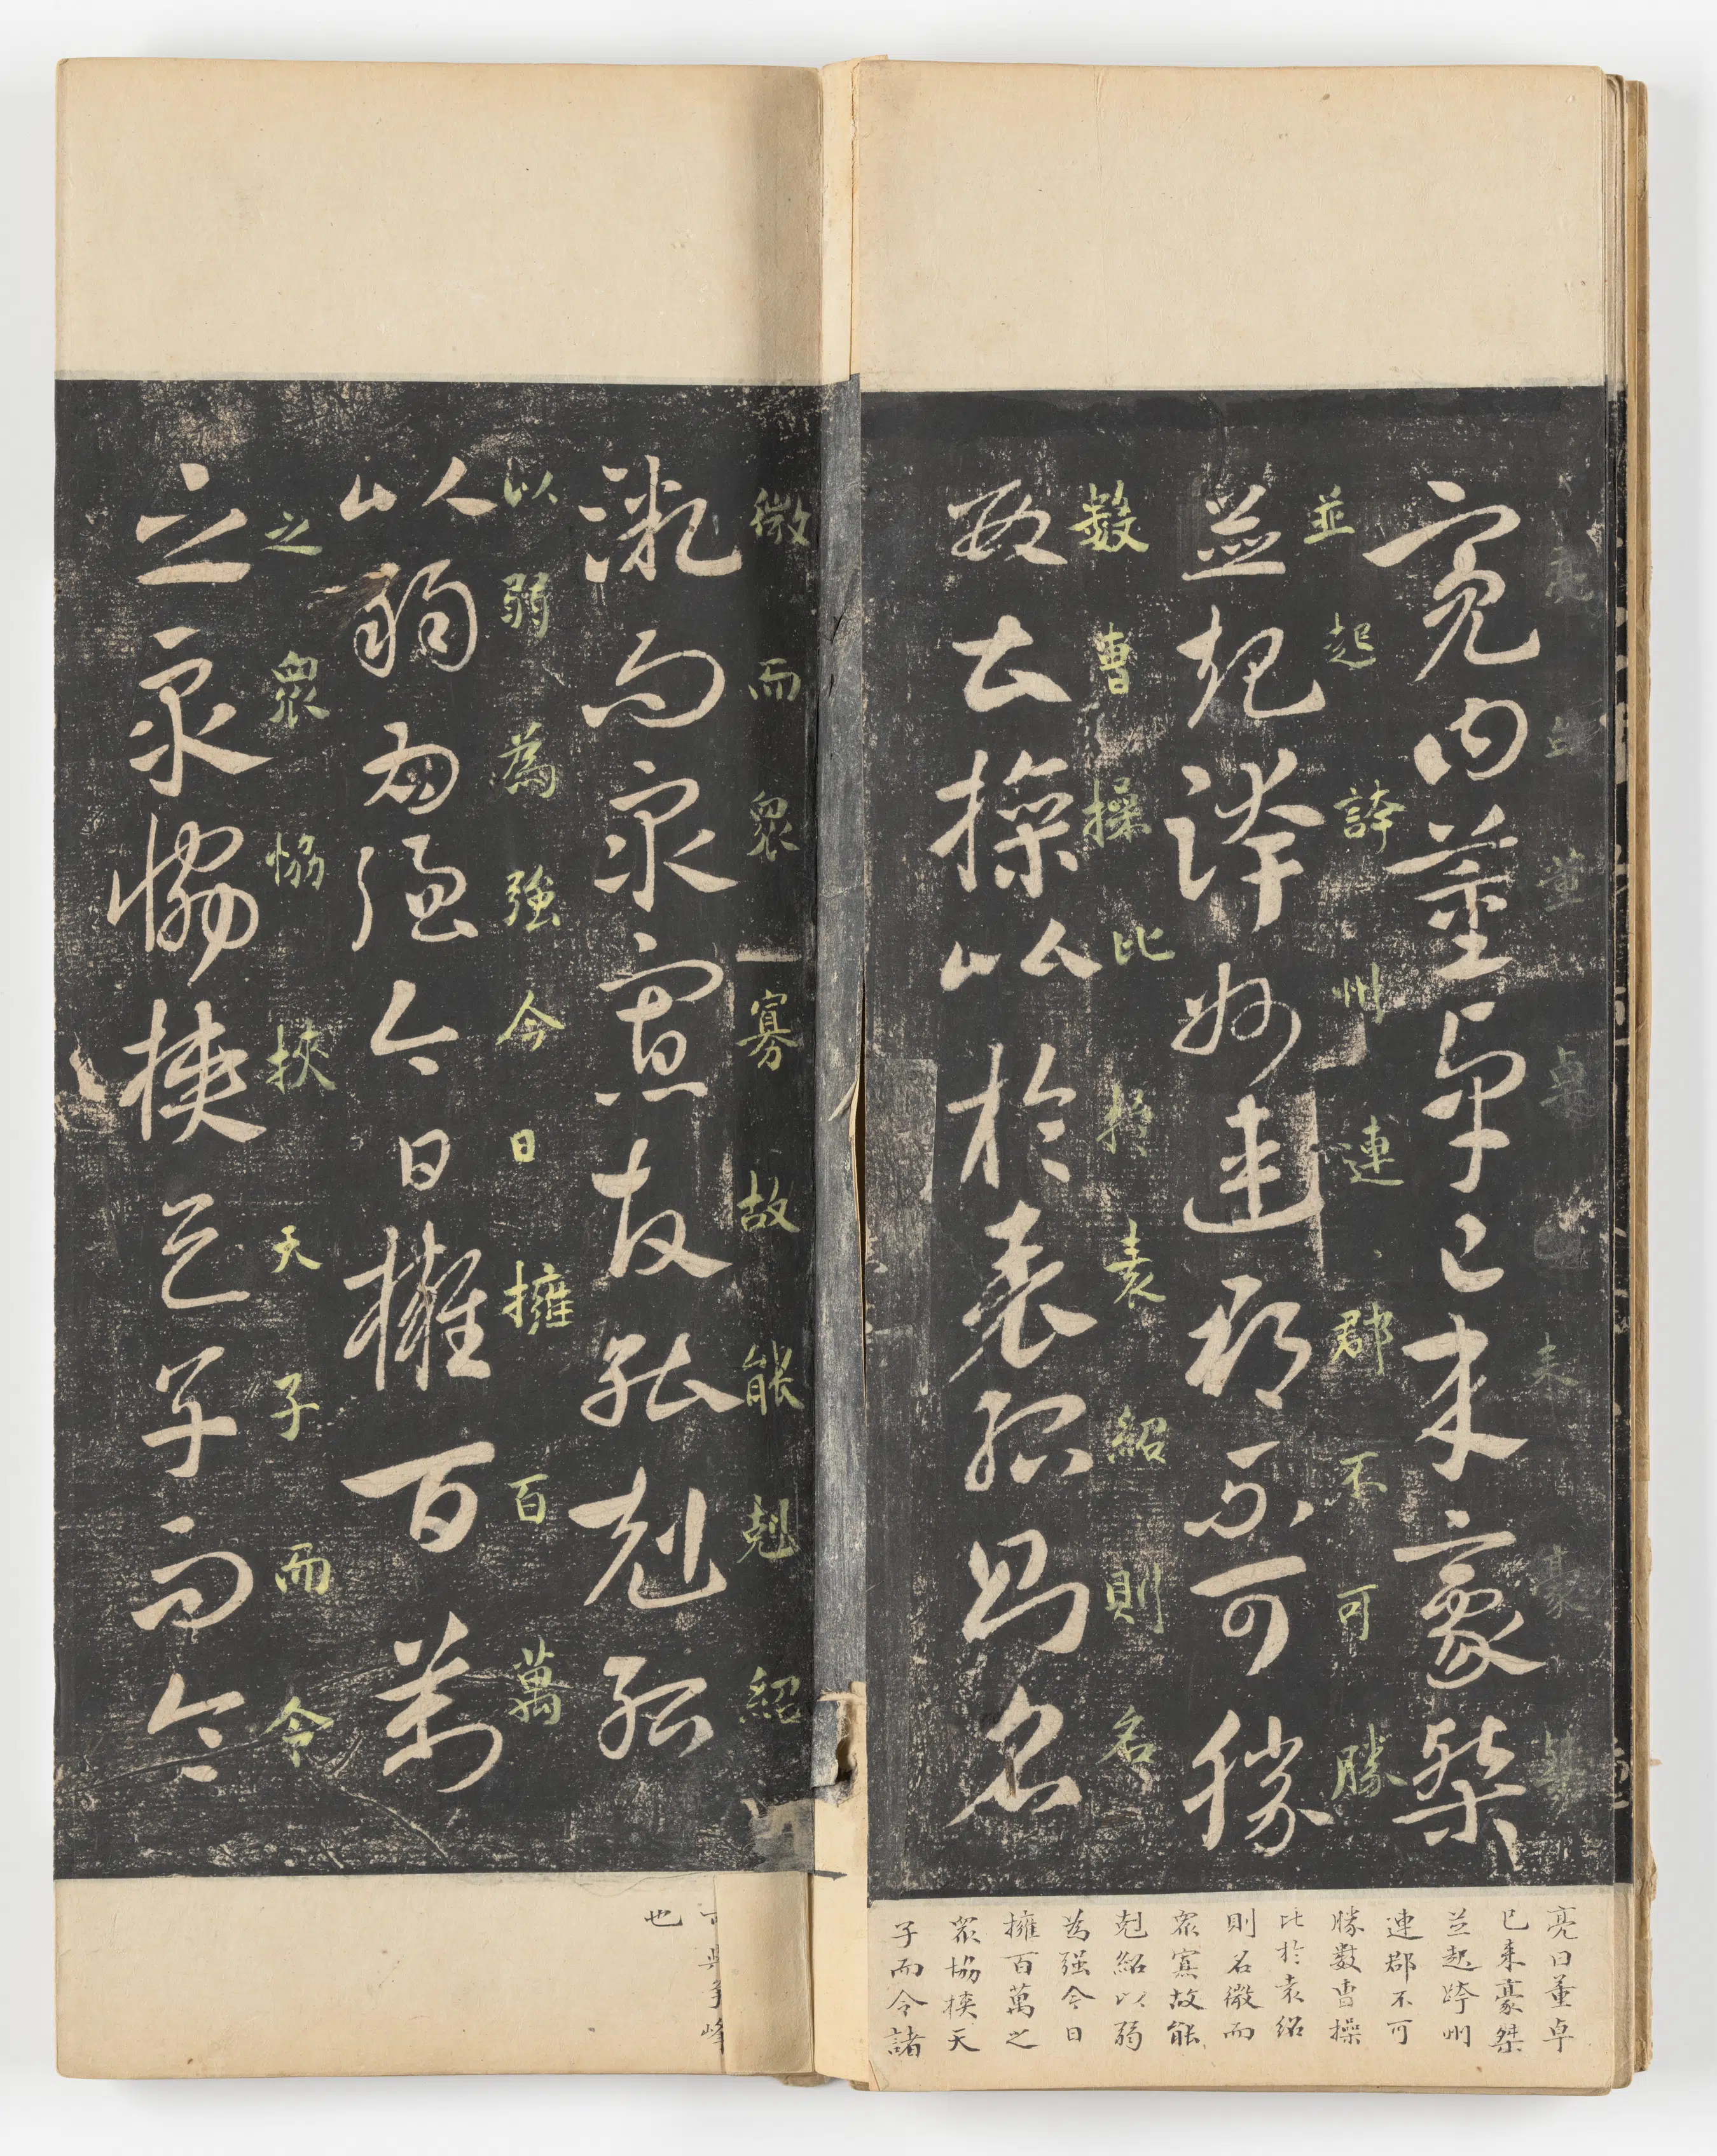 亮曰董卓已来豪桀
亮曰董卓已来豪桀
並起誇州連郡不可勝
並起誇州連郡不可勝
數曹操比於袁紹則名
數曹操比於袁紹則名
微而衆寡故能剋紹
微而衆寡故能剋紹
以弱為强今日擁百萬
以弱為強今日擁百萬
之衆恊挾天子而令
之衆恊挾天子而令
亮曰董卓
已来豪桀
並起跨州
連郡不可
勝數曹操
比於袁紹
則名微而
衆寡故能
剋紹以弱
為强今日
擁百萬之
衆協挾天
子而令諸
與爭峰
也